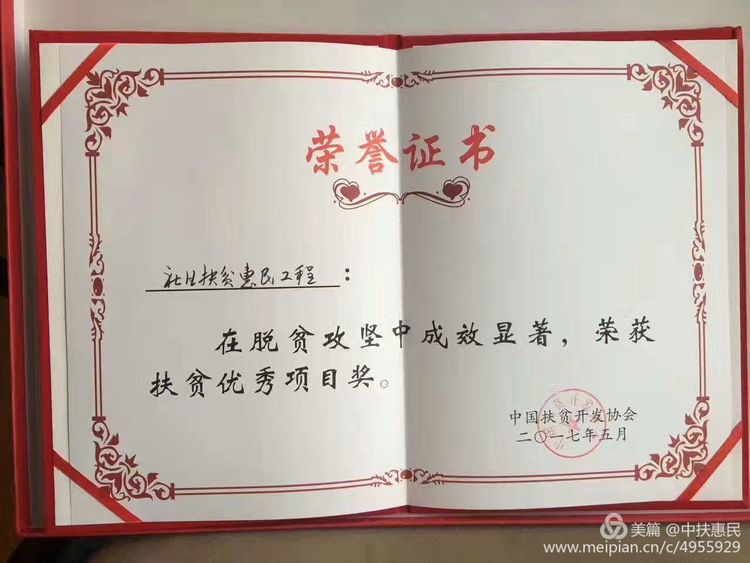 荣誉证书
社区扶贫惠民工程：
在脱贫攻坚中成效显著，荣获
扶贫优秀项目奖。
中国扶贫开发协会
二〇一七年五月
美篇 @中扶惠民
www.meipian.cn/c/4955929